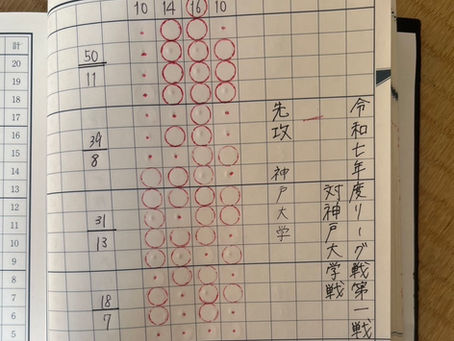 令和七年度リーグ戦第一戦
対神戸大学戦
先攻 神戸大学
10 14 16 10
50
11
39
8
31
13
18
7
計
20
19
18
17
16
15
14
13
12
11
10
9
8
7
6
5